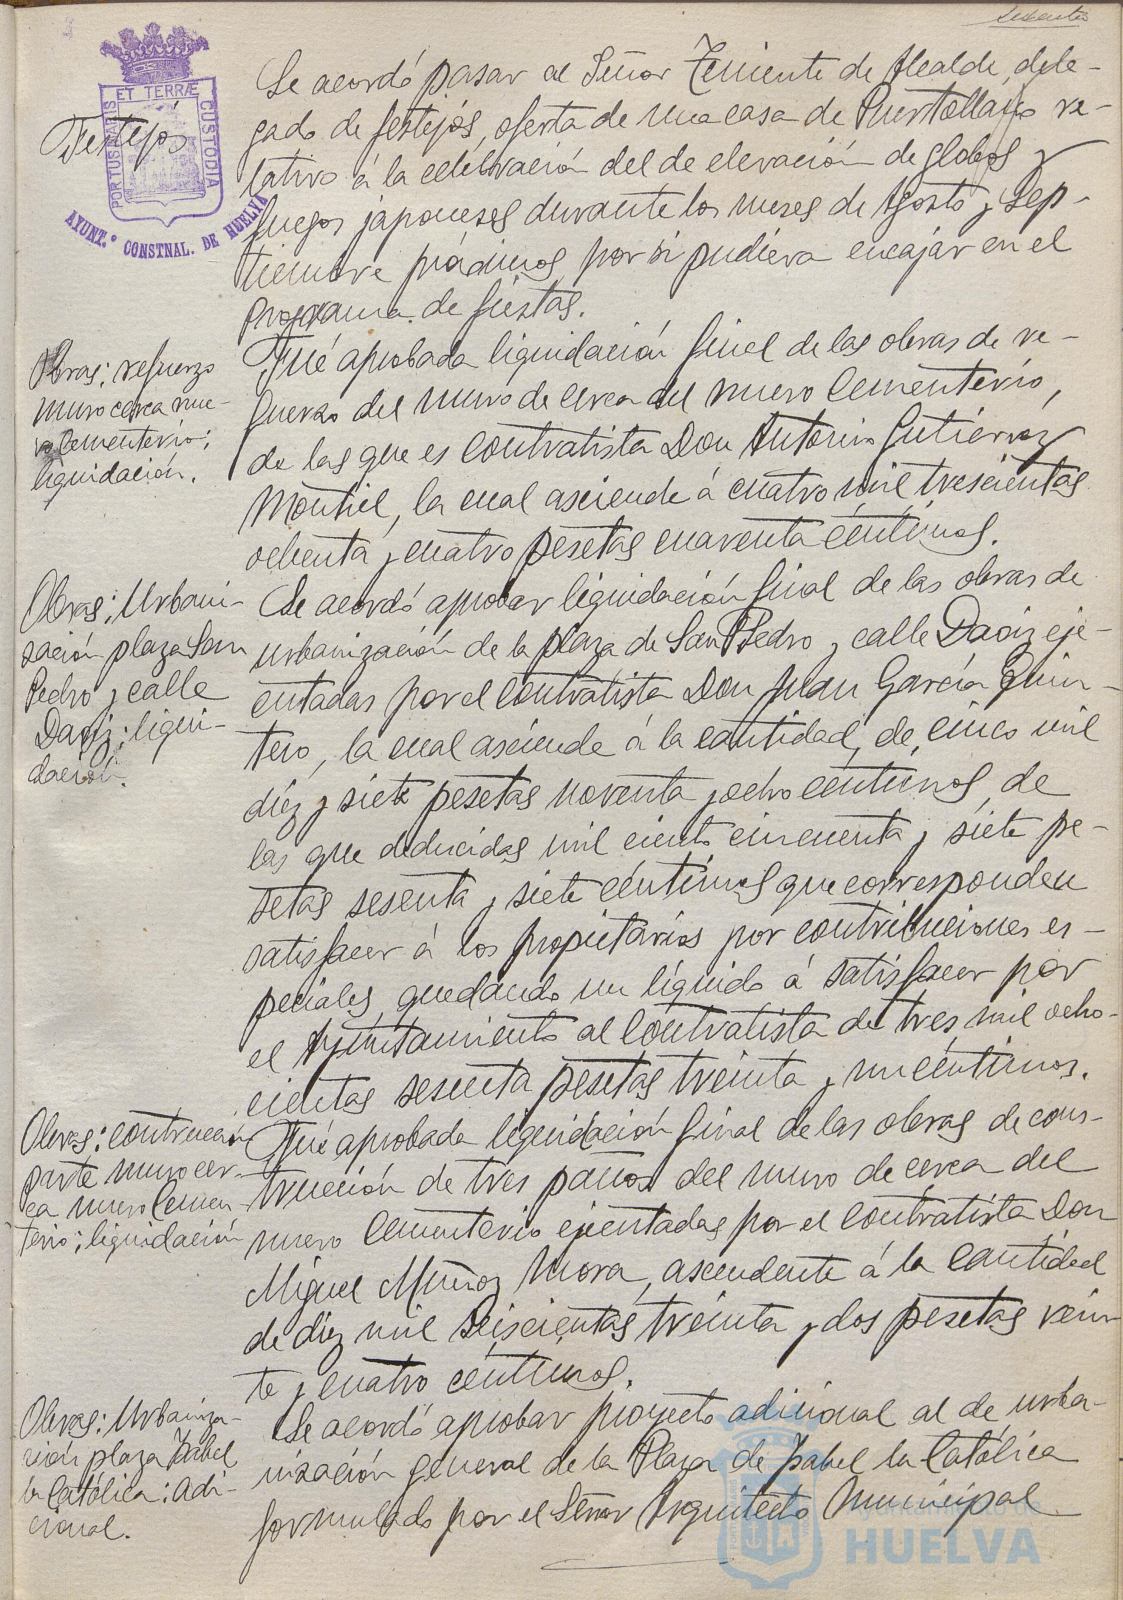 sesenta
ET TERRÆ
PORTUS MARIS
CUSTODIA
AYUNT.º CONSTNAL. DE HUELVA
Festejos
Se acordó pasar al Señor Teniente de Alcalde, dele-
gado de festejos, oferta de una casa de Puertollano re-
lativo á la celebración del de elevación de globos y
fuegos japoneses durante los meses de Agosto y Sep-
tiembre próximos, por si pudiera encajar en el
programa de fiestas.
Obras; refuerzo
muro cerca nue-
vo Cementerio;
liquidación.
Fué aprobada liquidación final de las obras de re-
fuerzo del muro de cerca del nuevo Cementerio,
de las que es contratista Don Antonio Gutiérrez
Montiel, la cual asciende á cuatro mil trescientas
ochenta y cuatro pesetas cuarenta céntimos.
Obras; Urbani-
zación plaza San
Pedro y calle
Daoiz; liqui-
dación.
Se acordó aprobar liquidación final de las obras de
urbanización de la plaza de San Pedro y calle Daoiz eje-
cutadas por el contratista Don Juan García Quin-
tero, la cual asciende á la cantidad de cinco mil
diez y siete pesetas noventa y ocho céntimos, de
las que deducidas mil ciento cincuenta y siete pe-
setas sesenta y siete céntimos que corresponden
satisfacer á los propietarios por contribuciones es-
peciales, quedando un líquido á satisfacer por
el Ayuntamiento al contratista de tres mil ocho-
cientas sesenta pesetas treinta y un céntimos.
Obras: contrucción
parte muro cer-
ca nuevo Cemen-
terio; liquidación
Fué aprobada liquidación final de las obras de cons-
trucción de tres paños del muro de cerca del
nuevo Cementerio ejecutadas por el contratista Don
Miguel Muñoz Mora, ascendente á la cantidad
de diez mil seiscientas treinta y dos pesetas vein-
te y cuatro céntimos.
Obras: Urbaniza-
ción plaza Isabel
la Católica: adi-
cional.
Se acordó aprobar proyecto adicional al de urba-
nización general de la Plaza de Isabel la Católica
formulado por el Señor Arquitecto Municipal
Ayuntamiento de
HUELVA